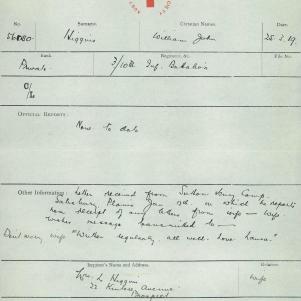 No. Surname. Christian Names. Date.
56080. Higgins William John 25.2.19.
Rank Regiment, &c. File No.
Private. 3/10th Inf. Battalion
OFFICIAL REPORTS:
None to date
Other Information: Letter received from Sutton Veny Camp,
Salisbury Plains Jan 3rd, in which he reports
non receipt of any letters from wife - Wife
wishes message transmitted to -
Dent worry wife "Written regularly, all well. Love Laura."
Inquirer's Name and Address.
Mrs. L. Higgins Wife
22 Kintore Avenue
Prospect